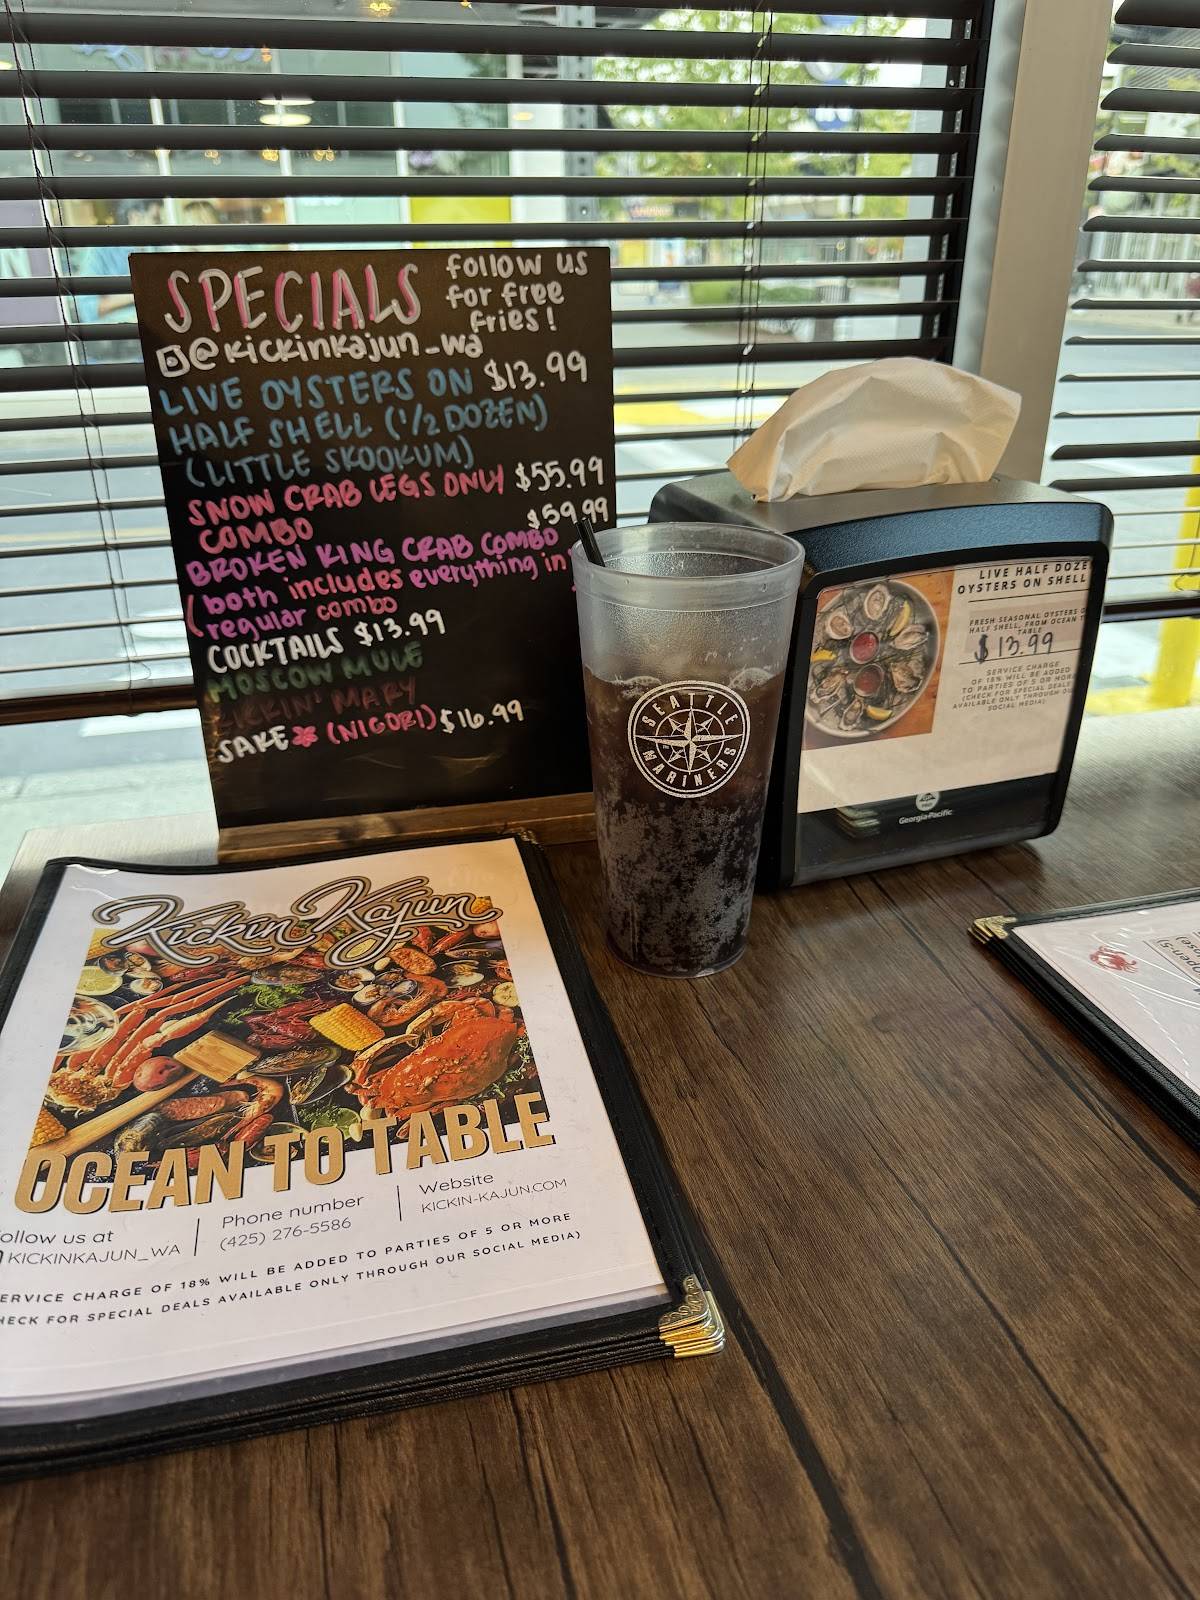 SPECIALS
follow us
for free
fries!
@kickinkajun_wa
LIVE OYSTERS ON $13.99
HALF SHELL (1/2 DOZEN)
(LITTLE SKOOKUM)
SNOW CRAB LEGS ONLY $55.99
COMBO
$59.99
BROKEN KING CRAB COMBO
(both includes everything in
regular combo
COCKTAILS $13.99
MOSCOW MULE
MARY
SAKE (NIGORI) $16.99
SEATTLE
MARINERS
LIVE HALF DOZE
OYSTERS ON SHELL
FRESH SEASONAL OYSTERS O
HALF SHELL, FROM OCEAN T
TABLE
$13.99
SERVICE CHARGE
OF 18% WILL BE ADDED
TO PARTIES OF 5 OR MORE
(CHECK FOR SPECIAL DEALS
AVAILABLE ONLY THROUGH OU
SOCIAL MEDIA)
Georgia-Pacific
Kickin Kajun
OCEAN TO TABLE
ollow us at
KICKINKAJUN_WA
Phone number
(425) 276-5586
Website
KICKIN-KAJUN.COM
ERVICE CHARGE OF 18% WILL BE ADDED TO PARTIES OF 5 OR MORE
HECK FOR SPECIAL DEALS AVAILABLE ONLY THROUGH OUR SOCIAL MEDIA)